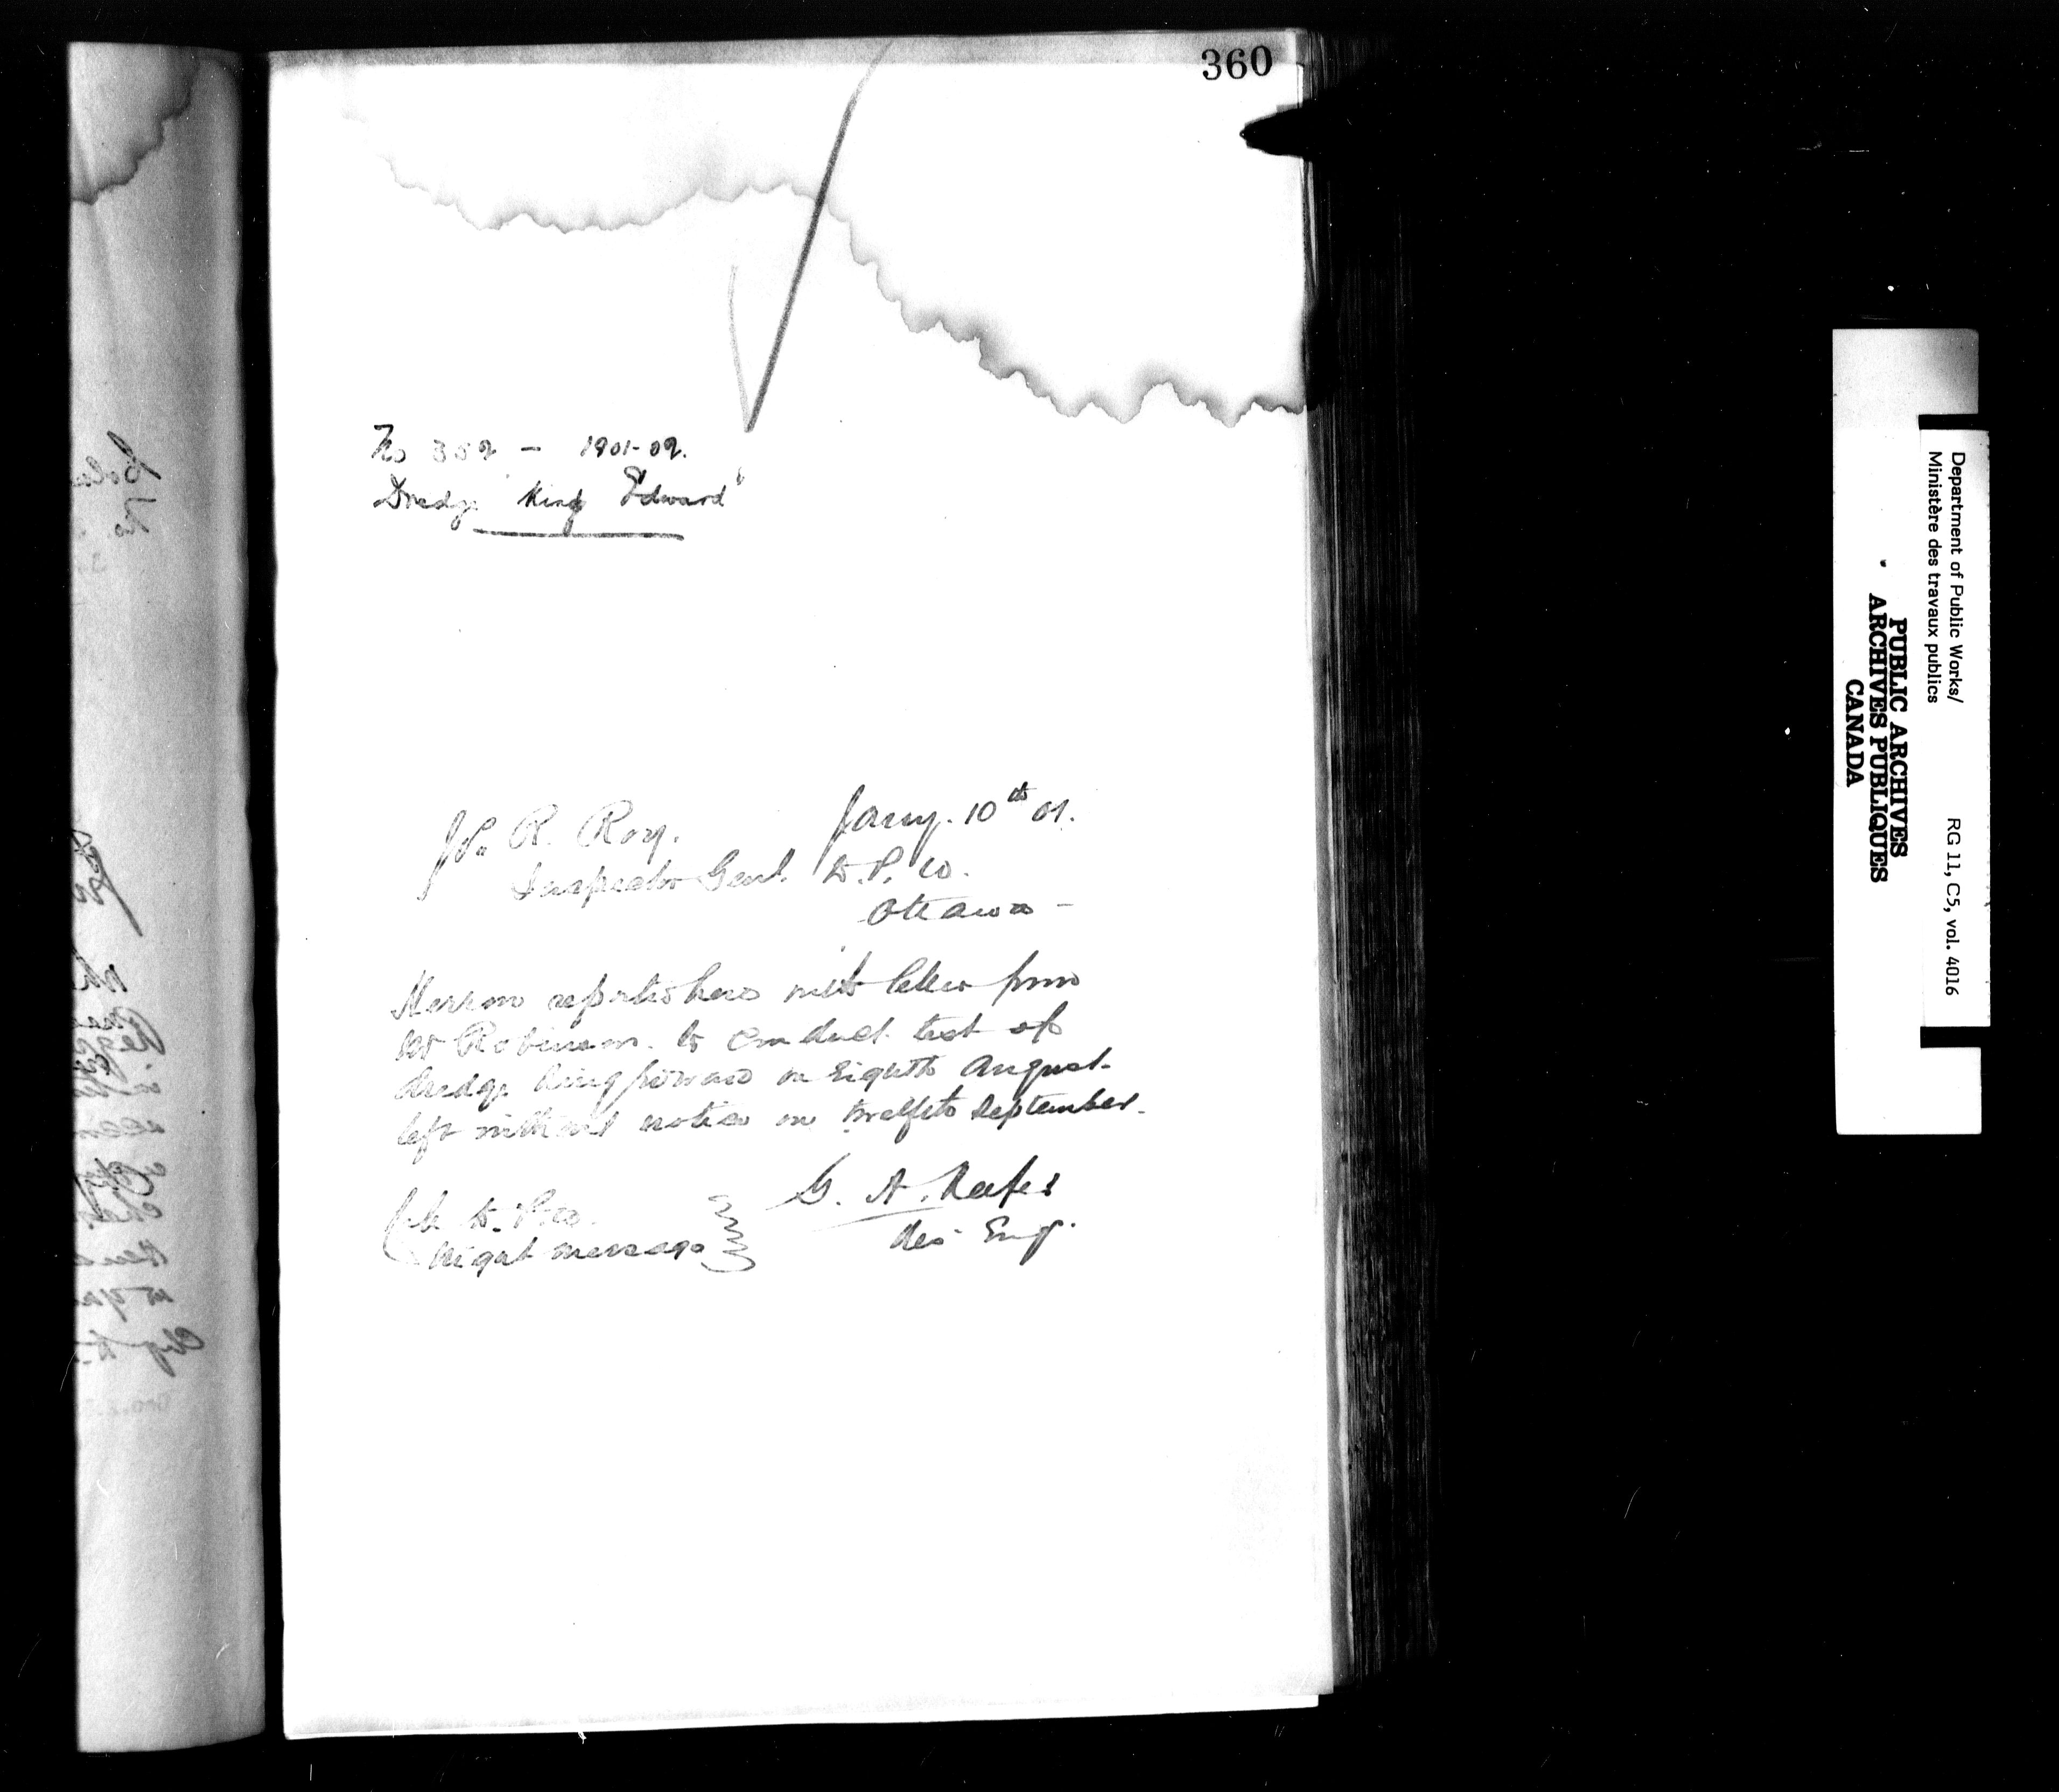 360
No 352 - 1901-02.
Dredge "King Edward"
Jany. 10th 02.
J. R. Roy.
Inspector Genl. D.P.W.
Ottawa -
reported here with letter from
Mr Robinson to conduct test of
dredge King Edward on eighth August.
left without notice on twelfth September.
G. A. Keefer
Res. Engr.
Ch. D.P.W.
Night message
Department of Public Works/
Ministère des travaux publics
RG 11, C5, vol. 4016
PUBLIC ARCHIVES
ARCHIVES PUBLIQUES
CANADA